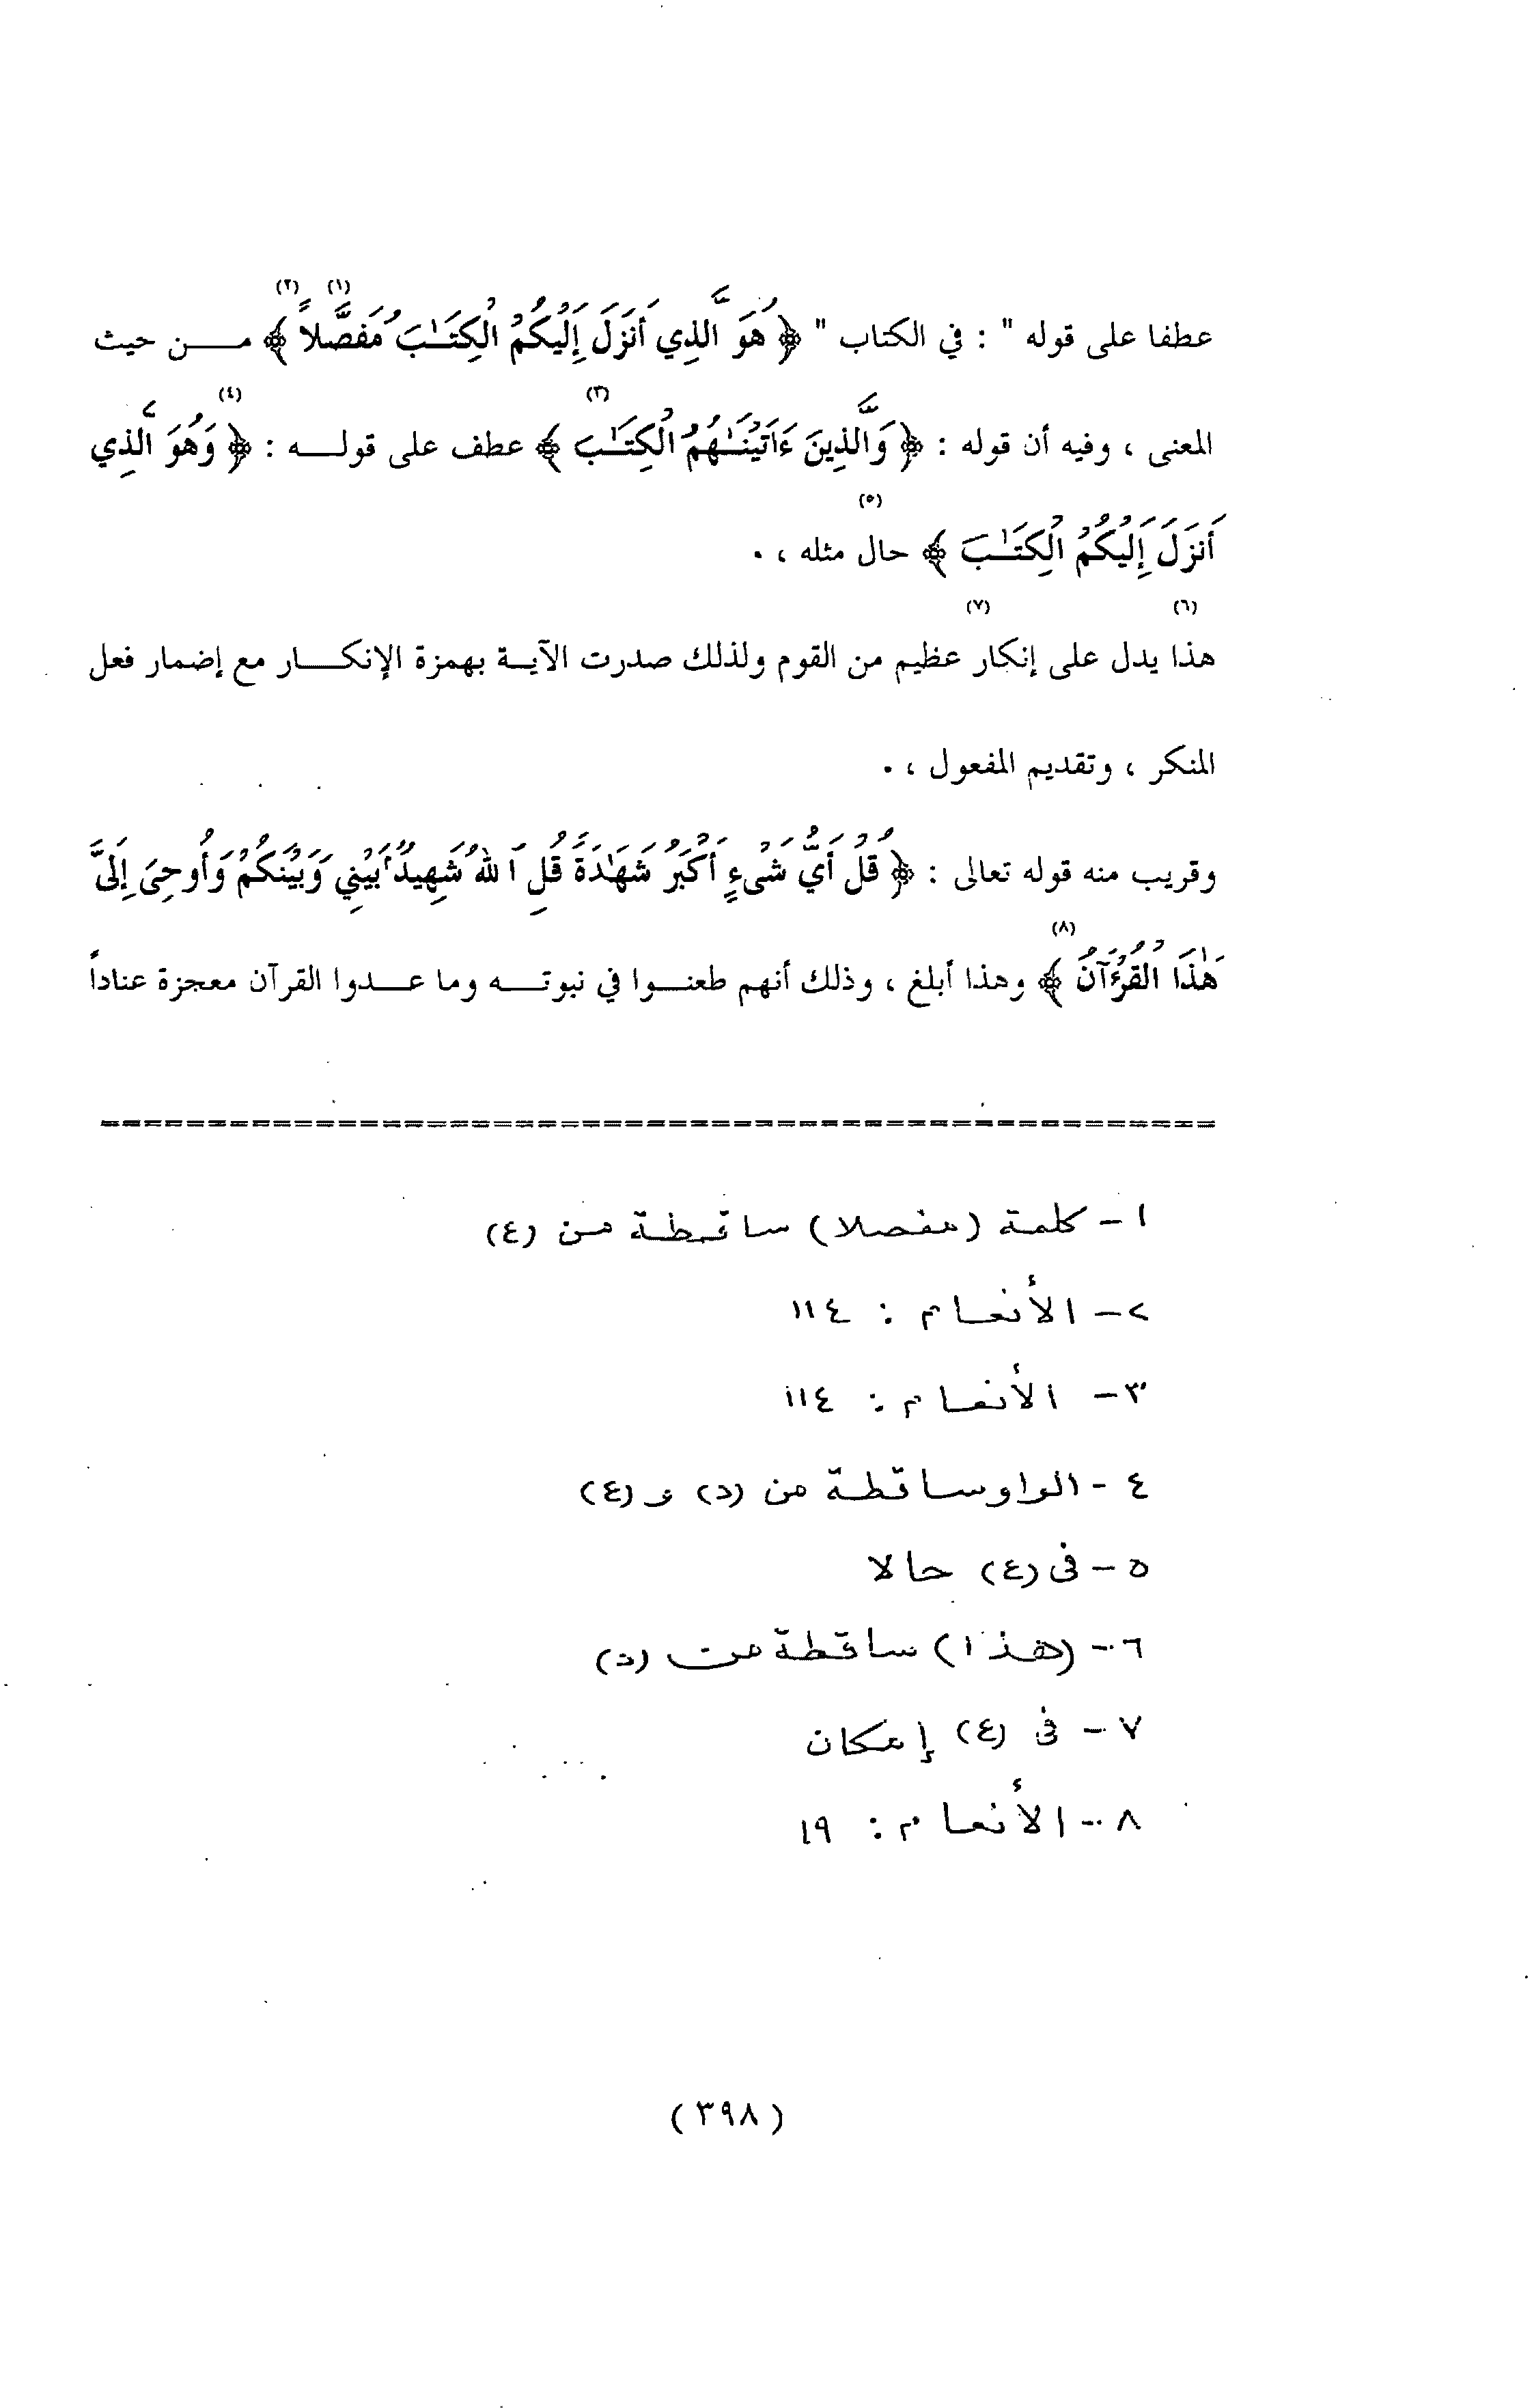 عطفا على قوله " : في الكتاب " ﴿ هُوَ الَّذِي أَنزَلَ إِلَيْكُمُ الْكِتَـٰبَ مُفَصَّلاً ﴾ مـــن حيث
(١) (٢)
المعنى ، وفيه أن قوله : ﴿ وَالَّذِينَ ءَاتَيْنَـٰهُمُ الْكِتَـٰبَ ﴾ عطف على قولـــه : ﴿ وَهُوَ الَّذِي
(٣) (٤)
أَنزَلَ إِلَيْكُمُ الْكِتَـٰبَ ﴾ حال مثله ، .
(٥)
هذا يدل على إنكار عظيم من القوم ولذلك صدرت الآيـة بهمزة الإنكـــار مع إضمار فعل
(٦) (٧)
المنكر ، وتقديم المفعول ، .
وقريب منه قوله تعالى : ﴿ قُلْ أَيُّ شَىْءٍ أَكْبَرُ شَهَـٰدَةً قُلِ اللَّهُ شَهِيدٌ بَيْنِي وَبَيْنَكُمْ وَأُوحِىَ إِلَىَّ
هَـٰذَا الْقُرْءَآنُ ﴾ وهذا أبلغ ، وذلك أنهم طعنـــوا في نبوتـــه وما عـــدوا القرآن معجزة عناداً
(٨)
١ - كلمة (مفصلا) ساقطة من (ع)
٢ - الأنعام : ١١٤
٣ - الأنعام : ١١٤
٤ - الواو ساقطة من (د) و (ع)
٥ - فى (ع) حالا
٦ - (هذا) ساقطة من (د)
٧ - فى (ع) إمكان
٨ - الأنعام : ١٩
(٣٩٨)